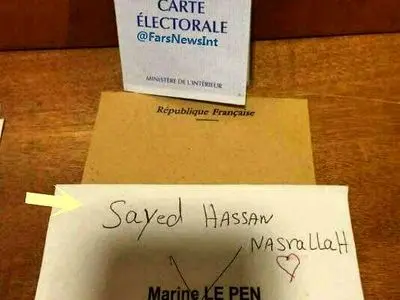 CARTE
ÉLECTORALE
@FarsNewsInt
MINISTÈRE DE L'INTÉRIEUR
République Française
Sayed HASSAN
NASrallaH
Marine LE PEN